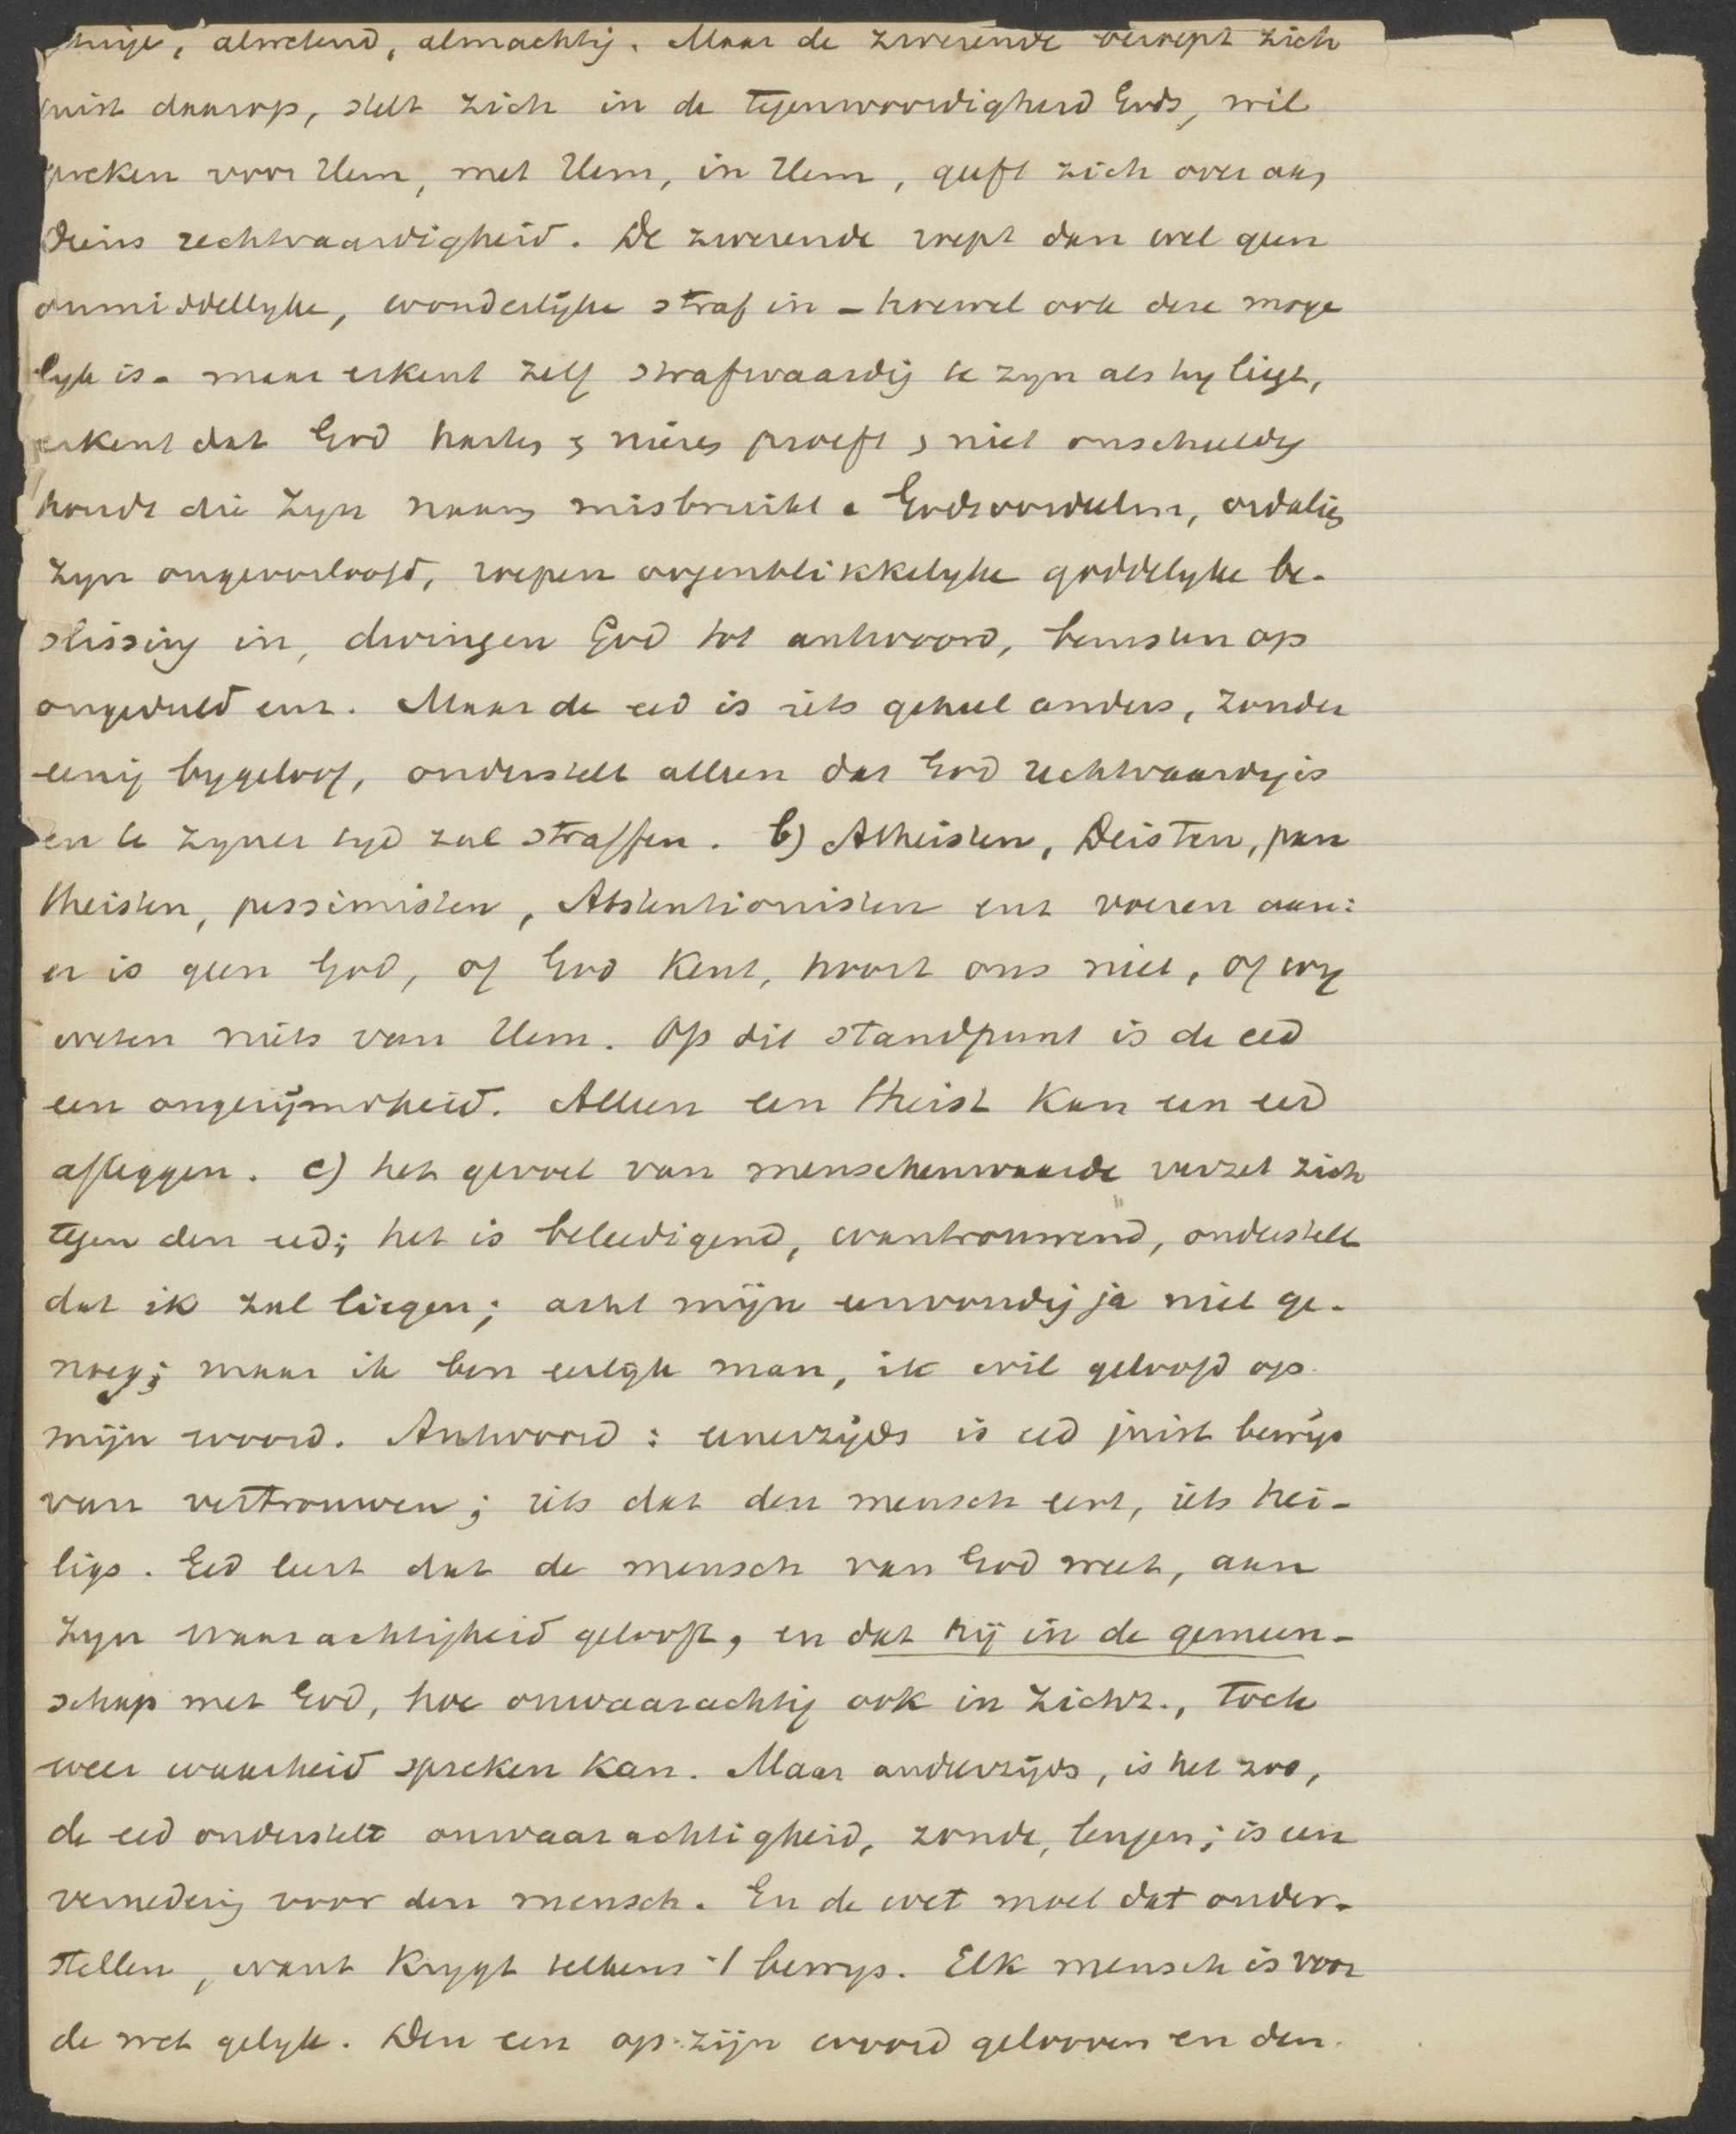 alwetend, almachtig. Maar de zwerende beroept zich
juist daarop, stelt zich in de tegenwoordigheid Gods, wil
spreken voor Hem, met Hem, in Hem, geeft zich over aan
Diens rechtvaardigheid. De zwerende roept dan wel geen
onmiddellyke, wonderlijke straf in - hoewel ook deze moge
lyk is - maar erkent zelf strafwaardig te zyn als hy liegt,
erkent dat God harten en nieren proeft en niet onschuldig
houdt die Zyn naam misbruikt. Godsoordeelen, ordaliën
zyn ongeoorloofd, roepen oogenblikkelyke goddelyke be-
slissing in, dwingen God tot antwoord, berusten op
ongeduld enz. Maar de eed is iets geheel anders, zonder
eenig bygeloof, onderstelt alleen dat God rechtvaardig is
en te zyner tyd zal straffen. b) Atheisten, Deisten, pan
theisten, pessimisten, Abstentionisten enz voeren aan:
er is geen God, of God kent, hoort ons niet, of wy
weten niets van Hem. Op dit standpunt is de eed
een ongerijmdheid. Alleen een theist kan een eed
afleggen. c) het gevoel van menschenwaarde verzet zich
tegen den eed; het is beleedigend, wantrouwend, onderstelt
dat ik zal liegen; acht mijn eenvoudig ja niet ge-
noeg; maar ik ben eerlijk man, ik wil geloofd op
mijn woord. Antwoord: eenerzijds is eed juist bewijs
van vertrouwen; iets dat den mensch eert, iets hei-
ligs. Eed leert dat de mensch van God weet, aan
Zyn waarachtigheid gelooft, en dat hij in de gemeen-
schap met God, hoe onwaarachtig ook in zichz., toch
weer waarheid spreken kan. Maar anderzijds, is het zoo,
de eed onderstelt onwaarachtigheid, zonde, leugen; is een
vernedering voor den mensch. En de wet moet dat onder-
stellen, want krygt telkens 't bewys. Elk mensch is voor
de wet gelyk. Den een op zijn woord gelooven en den